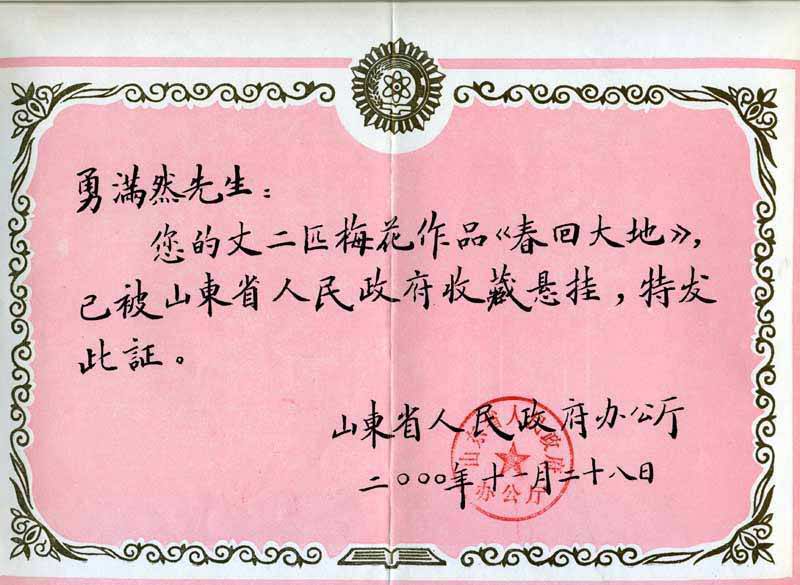 勇满然先生：
您的丈二匹梅花作品《春回大地》，
已被山東省人民政府收藏悬挂，特发
此証。
山東省人民政府办公厅
二〇〇〇年十一月二十八日
山东省人民政府
办公厅